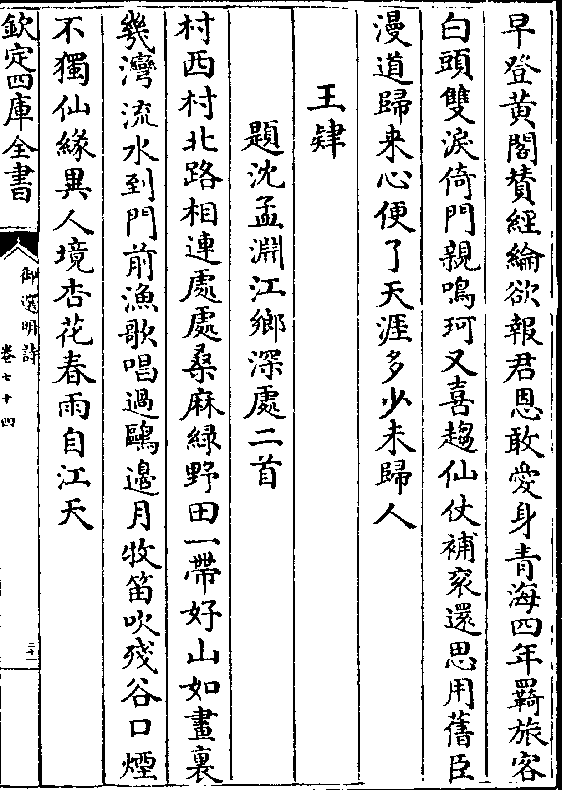 早登黄閣賛經綸欲報君恩敢愛身青海四年羇旅客
白頭雙淚倚門親鳴珂又喜趨仙仗補衮還思用舊臣
漫道歸来心便了天涯多少未歸人
王肄
題沈孟淵江鄉深處二首
村西村北路相連處處桑麻緑野田一帶好山如畫裏
幾灣流水到門前漁歌唱過鷗邊月牧笛吹殘谷口煙
不獨仙緣異人境杏花春雨自江天
欽定四庫全書
御選明詩
卷七十四